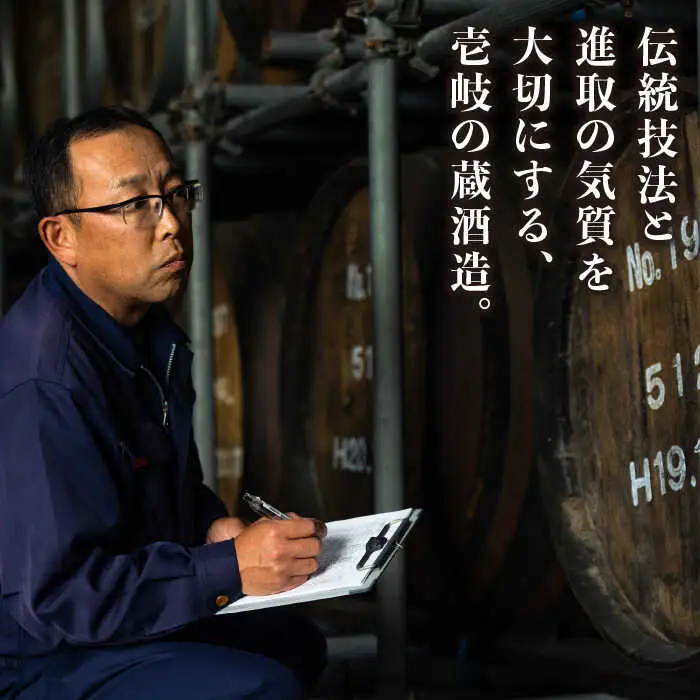 伝統技法と
進取の気質を
大切にする、
壱岐の蔵酒造。
No.19
512
H19.
No.1
51
H20.